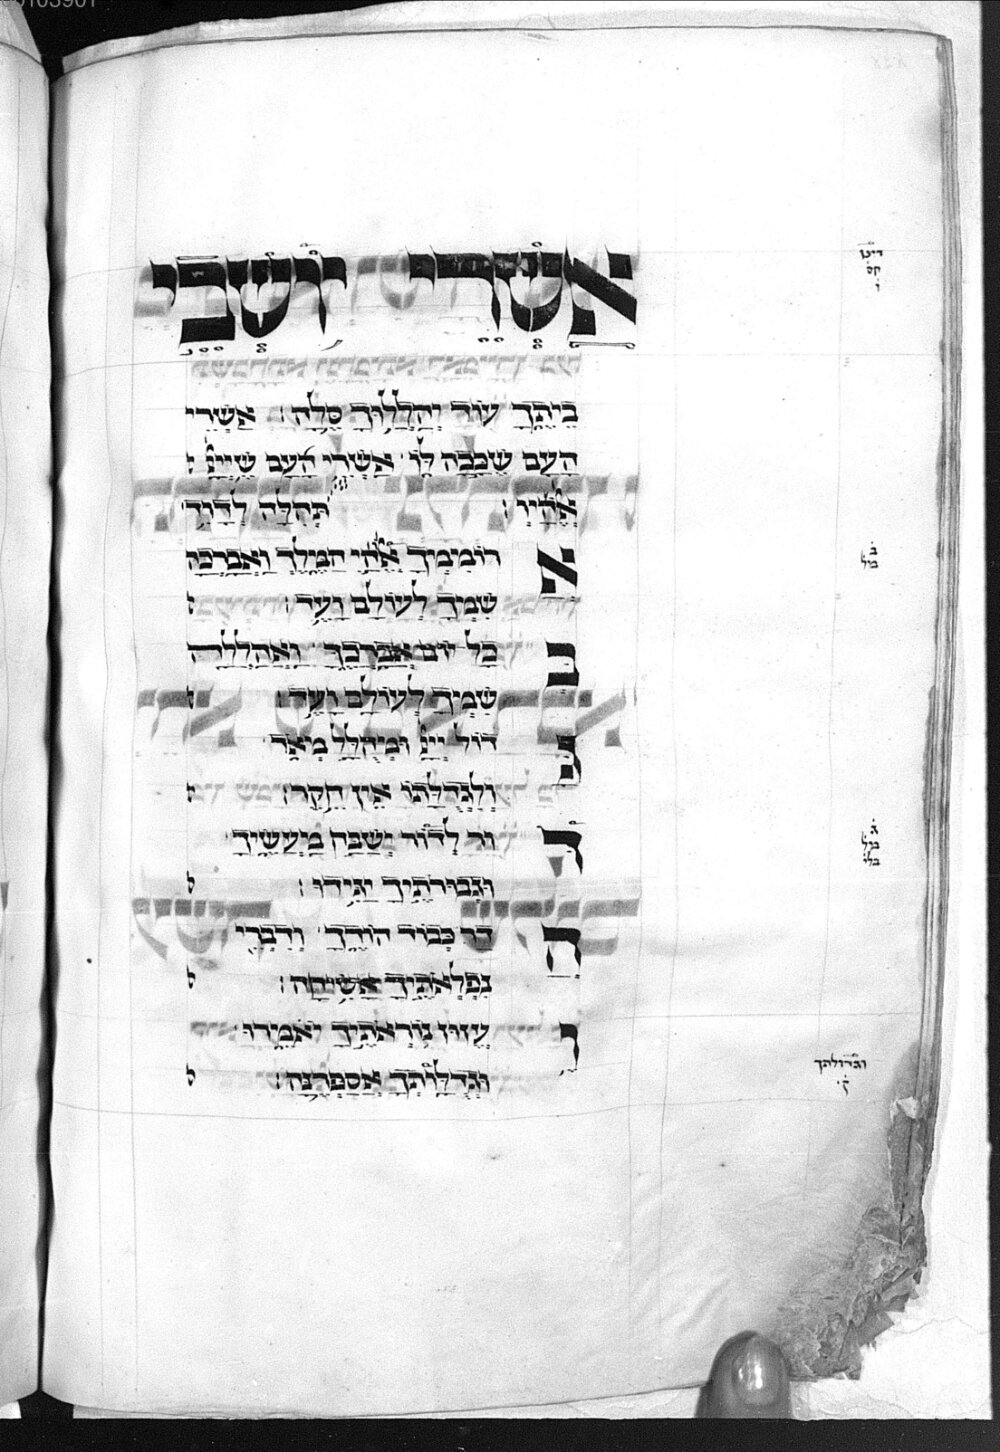 אַשְׁרֵי יוֹשְׁבֵי
בֵיתֶךָ עוֹד יְהַלְלוּךָ סֶּלָה׃ אַשְׁרֵי
הָעָם שֶׁכָּכָה לּוֹ אַשְׁרֵי הָעָם שֶׁייי
אֱלֹהָיו׃ תְּהִלָּה לְדָוִד
אֲ
רוֹמִמְךָ אֱלֹהַי הַמֶּלֶךְ וַאֲבָרְכָה
שִׁמְךָ לְעוֹלָם וָעֶד׃
בְּ
כָל יוֹם אֲבָרְכֶךָּ וַאֲהַלְלָה
שִׁמְךָ לְעוֹלָם וָעֶד׃
גָּ
דוֹל ייי וּמְהֻלָּל מְאֹד
וְלִגְדֻלָּתוֹ אֵין חֵקֶר׃
דּ
וֹר לְדוֹר יְשַׁבַּח מַעֲשֶׂיךָ
וּגְבוּרֹתֶיךָ יַגִּידוּ׃
הֲ
דַר כְּבוֹד הוֹדֶךָ וְדִבְרֵי
נִפְלְאֹתֶיךָ אָשִׂיחָה׃
וֶ
עֱזוּז נוֹרְאֹתֶיךָ יֹאמֵרוּ
וּגְדֻלָּתְךָ אֲסַפְּרֶנָּה׃
וגדולתך
ק׳